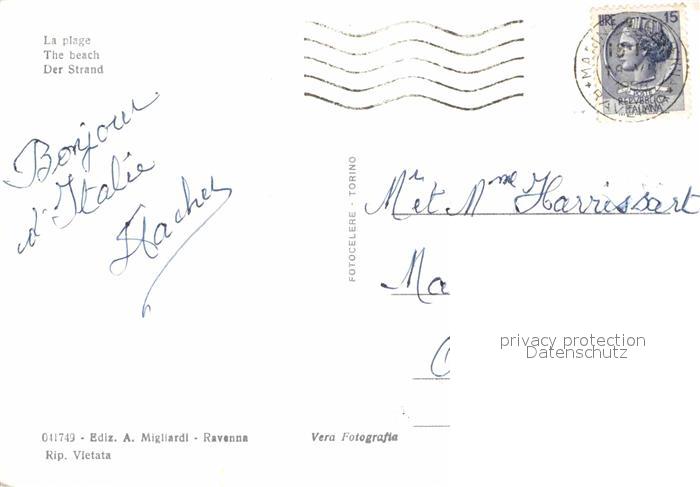 La plage
The beach
Der Strand
LIRE 15
POSTE
REPVBBLICA
ITALIANA
Bonjour
d'Italie
FOTOCELERE - TORINO
Mr et Mme Harrissart
Ma
privacy protection
Datenschutz
041749 - Ediz. A. Migliardi - Ravenna
Rip. Vietata
Vera Fotografia